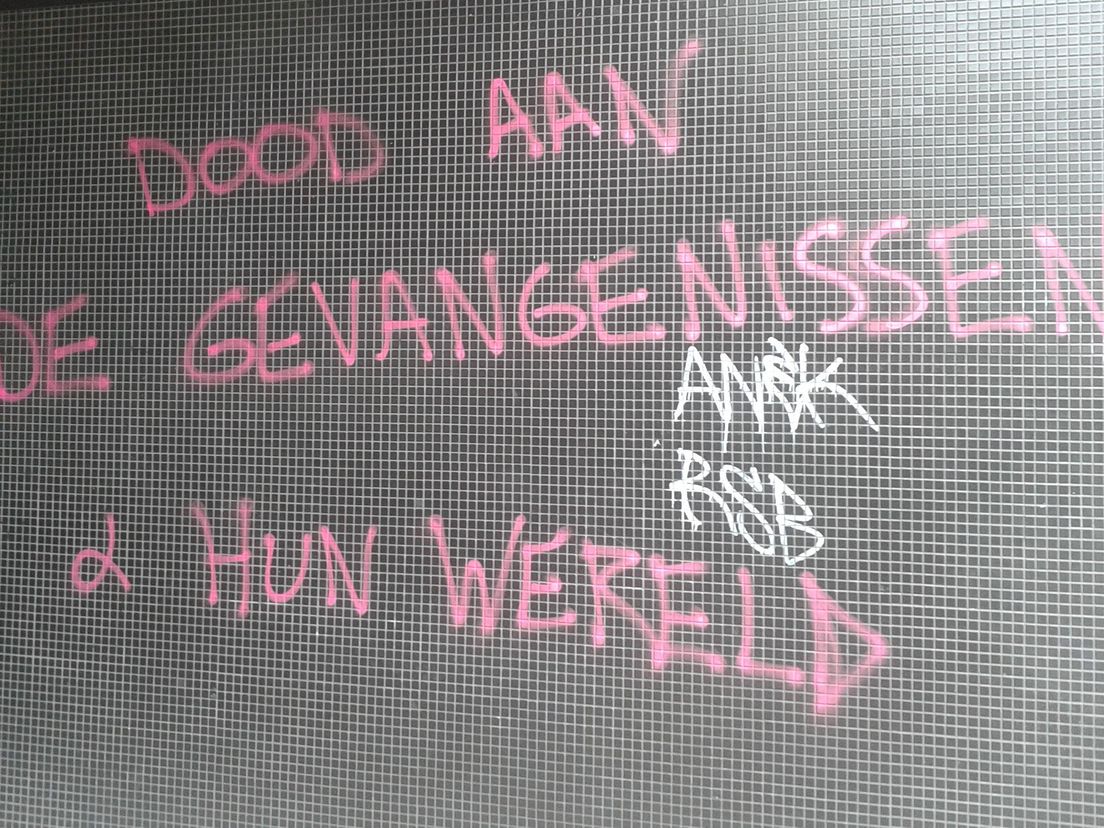 DOOD AAN
DE GEVANGENISSEN
& HUN WERELD
RSB